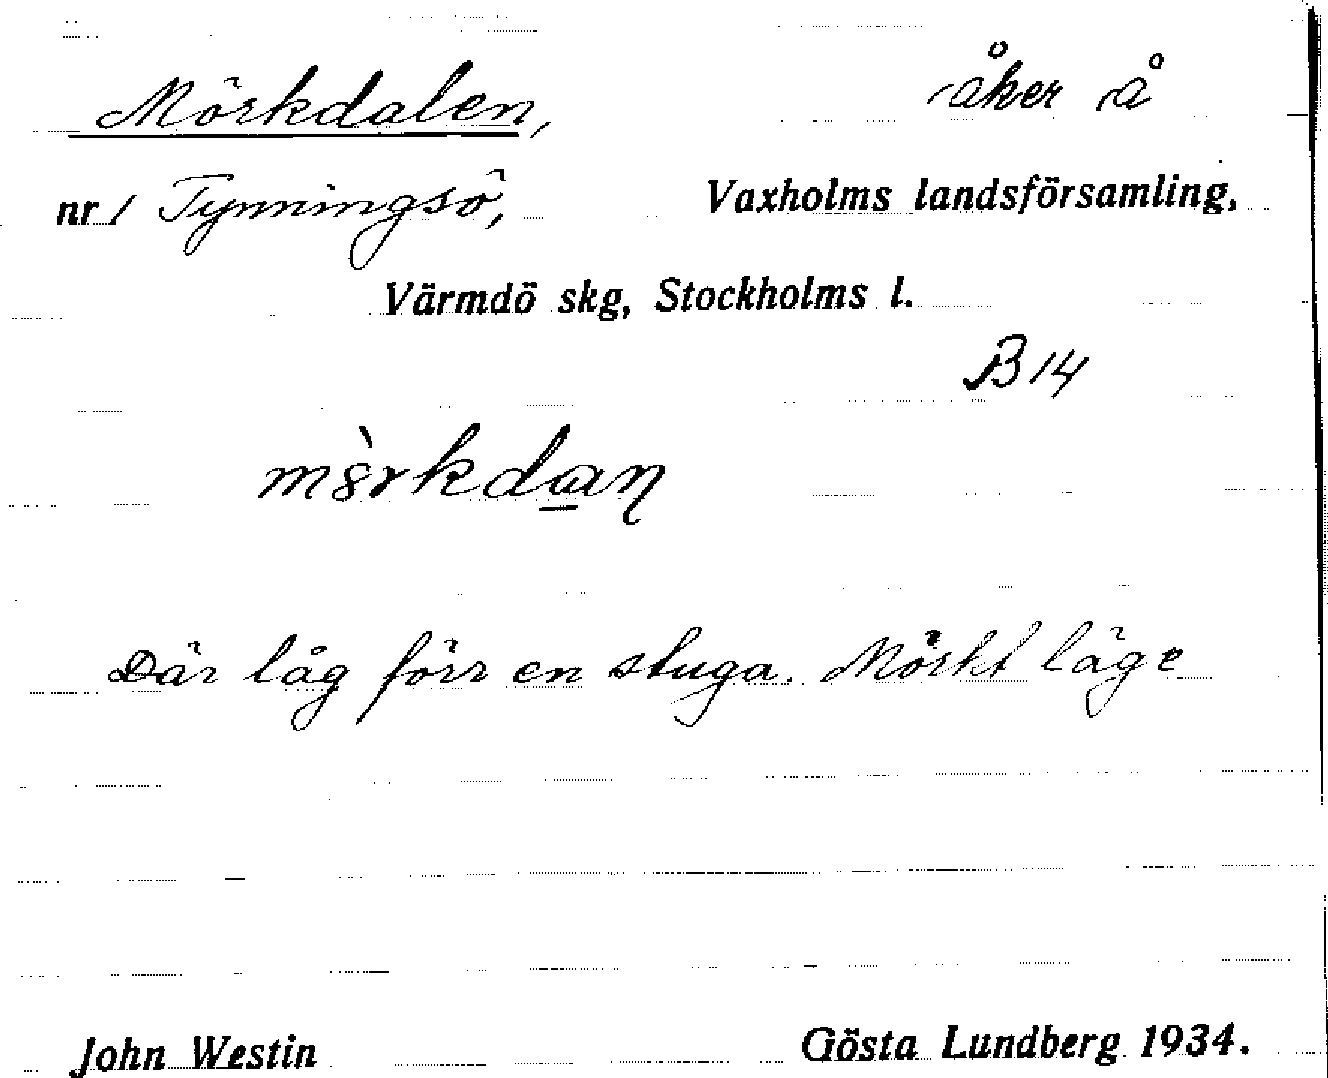 Mörkdalen, åker å
nr 1 Tynningsö, Vaxholms landsförsamling,
Värmdö skg, Stockholms l.
B 14
m8̀rkdɑ̲ꞃ
Där låg förr en stuga. Mörkt läge
John Westin Gösta Lundberg 1934.